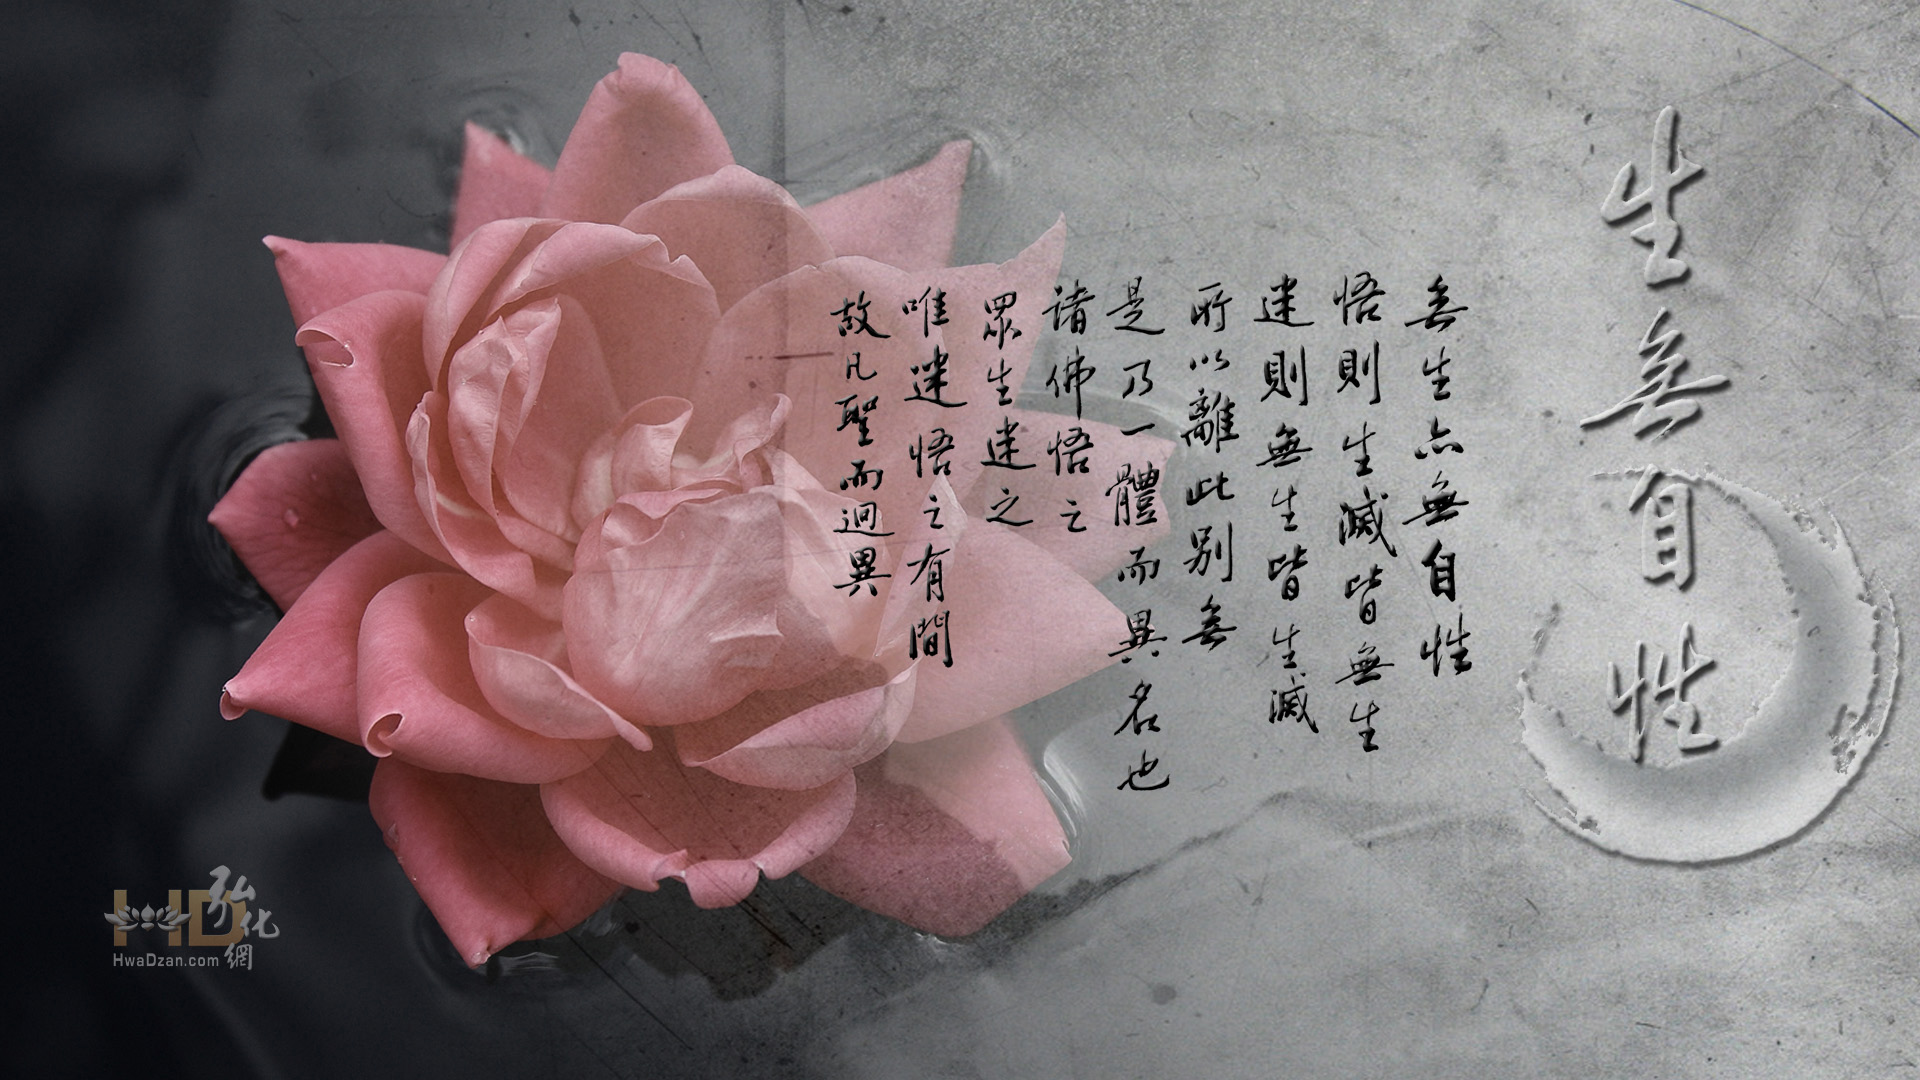 生無自性
無生亦無自性
悟則生滅皆無生
迷則無生皆生滅
所以離此別無
是乃一體而異名也
諸佛悟之
眾生迷之
唯迷悟之有間
故凡聖而迥異
HD弘化網
HwaDzan.com